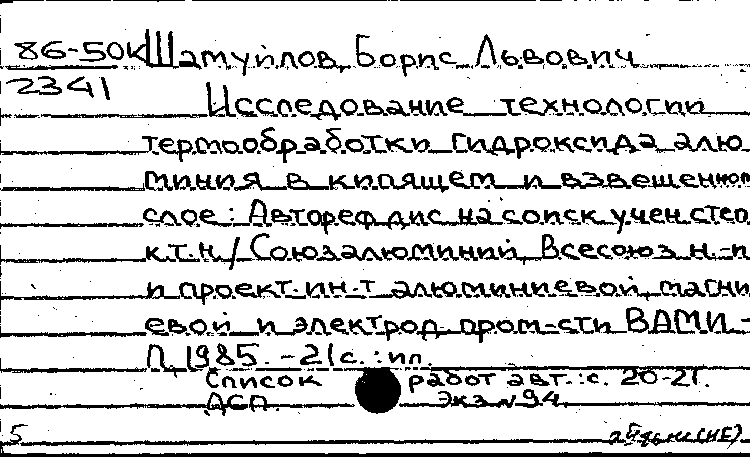 86-50к Шамуйлов, Борис Львович
2341
Исследование технологии
термообработки гидроксида алю
миния в кипящем и взвешенном
слое: Автореф дис на соиск учен степ
к.т.н./ Союзалюминий, Всесоюз н.-и
и проект. ин-т алюминиевой, магни
евой и электрод пром-сти ВАМИ -
Л, 1985. - 21 с. : ил.
Список работ авт.: с. 20-21.
ДСП. Экз №94.
5